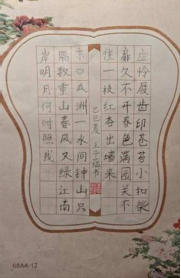 应怜屐齿印苍苔小扣柴
扉久不开春色满园关不
住一枝红杏出墙来
己巳夏 王子福书
京口瓜洲一水间钟山只
隔数重山春风又绿江南
岸明月何时照我
68A4-17